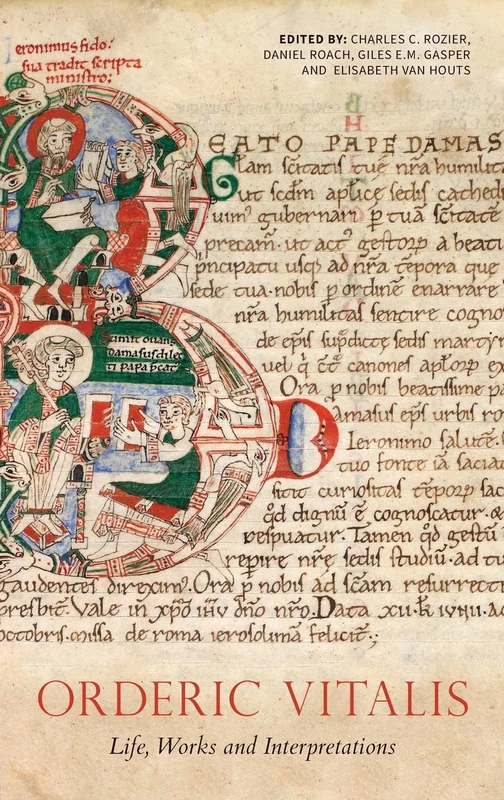 EDITED BY: CHARLES C. ROZIER,
DANIEL ROACH, GILES E.M. GASPER
AND ELISABETH VAN HOUTS
Ieronimus fido:
sua tradit scripta
ministro:
EATO PAPE DAMAS
Glam sc̄itatis tuę nr̄a humilit
ut scd̄m aplicę sedis cathed
gubernari ꝑ tuā sc̄itatē
precam̄. ut act᾽ gestoꝝ a beati
principatu usq; ad nr̄a tēpora que
sede tua nobis ꝑ ordinē enarrare
nr̄a humilitas sentire cogno
de ep̄is sup̄dictę sedis martyr
uel canones apl̄oꝝ
Ora ꝑ nobis beatissime p
damasus papa
Damasus ep̄s urbis ro
Ieronimo salutē
tuo fonte iā sacia
curiositas tēpoꝝ sac
qd̄ dignū ē cognoscatur. &
respuatur. Tamen qd̄ gestū
repire nrę sedis studiū. ad tu
gaudentes direxim᾽. Ora ꝑ nobis ad sc̄am resurrecti
presbit̄. Vale in xp̄o ih̄u dn̄o nr̄o. Data xii. k̄
octobris. missa de roma ierosolimā
ORDERIC VITALIS
Life, Works and Interpretations